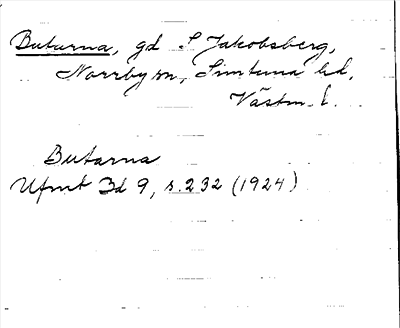 Buturna, gd S Jakobsberg,
Norrby sn, Simtuna hd,
Västm. l.
Butarna
Ufmt Bd 9, s. 232 (1924)